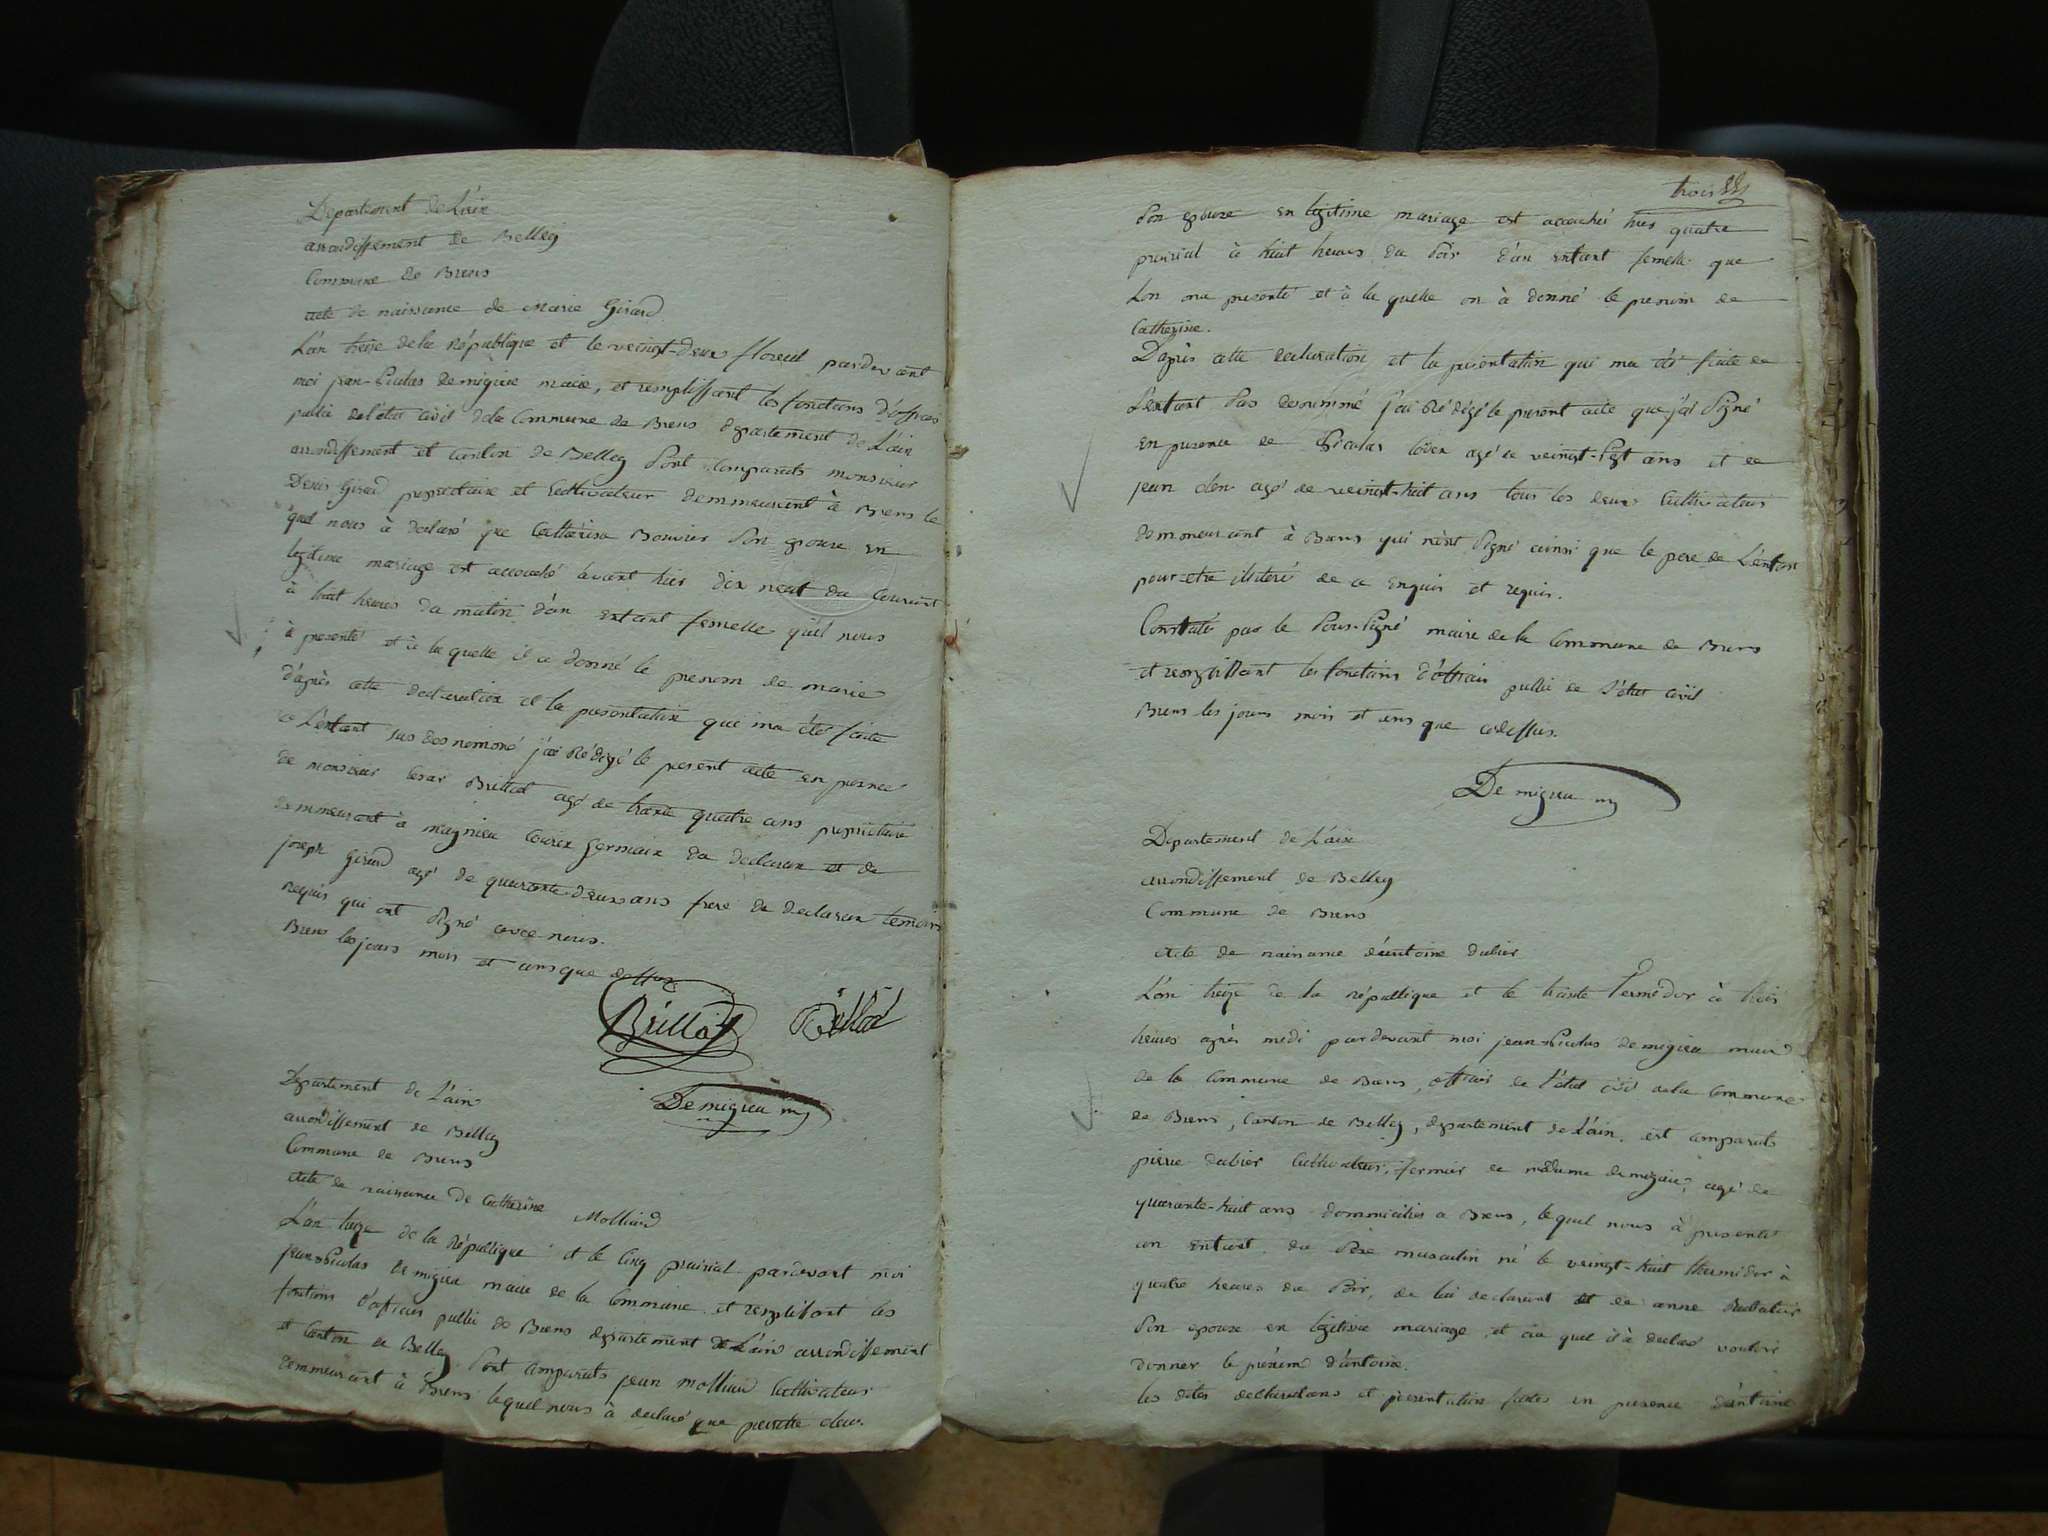 Departement de L'ain
arrondissement de Belley
Commune de Brens
acte de naissance de Marie Girard
L'an treize de la République et le veingt-deux floreal pardevant
moi jean-Nicolas demigieu maire, et remplissant les fonctions d'officier
public de l'état civil de la Commune de Brens departement de L'ain
arrondissement et Canton de Belley Sont Comparuts monsieur
Denis Girard propriétaire et Cultivateur demmeurant à Brens le
quel nous à declaré que Catherine Bouvier Son epouse en
legitime mariage est accouché avant hier dix neuf du Courant
à huit heures du matin d'un enfant femelle qu'il nous
à presenté et à la quelle il a donné le prenom de marie
d'après cette declaration et la presentation qui ma été faite
de L'enfant sus desnommé j'ai Rédigé le present acte en presence
de monsieur Cesar Brillat agé de trente quatre ans propriétaire
demmeurant à magnieu Cousin germain du declarant et de
joseph Girard agé de quarante-deux ans frere du declarant temoins
requis qui ont Signé avec nous.
Brens les jours mois et ans que dessus
Brillat
Demigieu m
Departement de L'ain
arrondissement de Belley
Commune de Brens
Acte de naissance de Catherine Molliard
L'an treize de la République et le Cinq prairial pardevant moi
jean-Nicolas demigieu maire de la Commune et remplissant les
fonctions d'officier public de Brens departement de L'ain arrondissement
et Canton de Belley Sont Comparuts jean molliard Cultivateur
demmeurant à Brens lequel nous à declaré que
trois
Son epouse en legitime mariage est accouchée hier quatre
prairial à huit heures du Soir d'un enfant femelle que
Lon ma presenté et à la quelle on à donné le prenom de
Catherine.
Dapres cette declaration et la presentation qui ma été faite de
L'enfant Sus denommé j'ai Rédigé le present acte que j'ai Signé
en presence de Nicolas agé de veingt-Sept ans et de
jean agé de veingt-huit ans tous les deux Cultivateurs
demmeurant à Brens qui n'ont Signé ainsi que le pere de L'enfant
pour etre illiteré de ce enquis et requis.
Constaté par le Sous-Signé maire de la Commune de Brens
et remplissant les fonctions d'officier public de l'état civil
Brens les jours mois et ans que cidessus.
Demigieu m
Departement de L'ain
arrondissement de Belley
Commune de Brens
Acte de naissance d'antoine dubier
L'an treize de la République et le trente termidor à trois
heures après midi pardevant moi jean-Nicolas demigieu maire
de la Commune de Brens, officier de l'état civil de la Commune
de Brens, Canton de Belley, departement de L'ain. est Comparuts
pierre dubier Cultivateur, fermier de madame demigieu, agé de
quarante-huit ans dommicilié a Brens, lequel nous à presenté
un enfant du Sexe masculin né le veingt-huit thermidor à
quatre heures du Soir, de lui declarant et de anne
Son epouse en legitime mariage, et au quel il à declaré vouloir
donner le prénom d'antoine.
les dites declarations et presentation faites en presence d'antoine